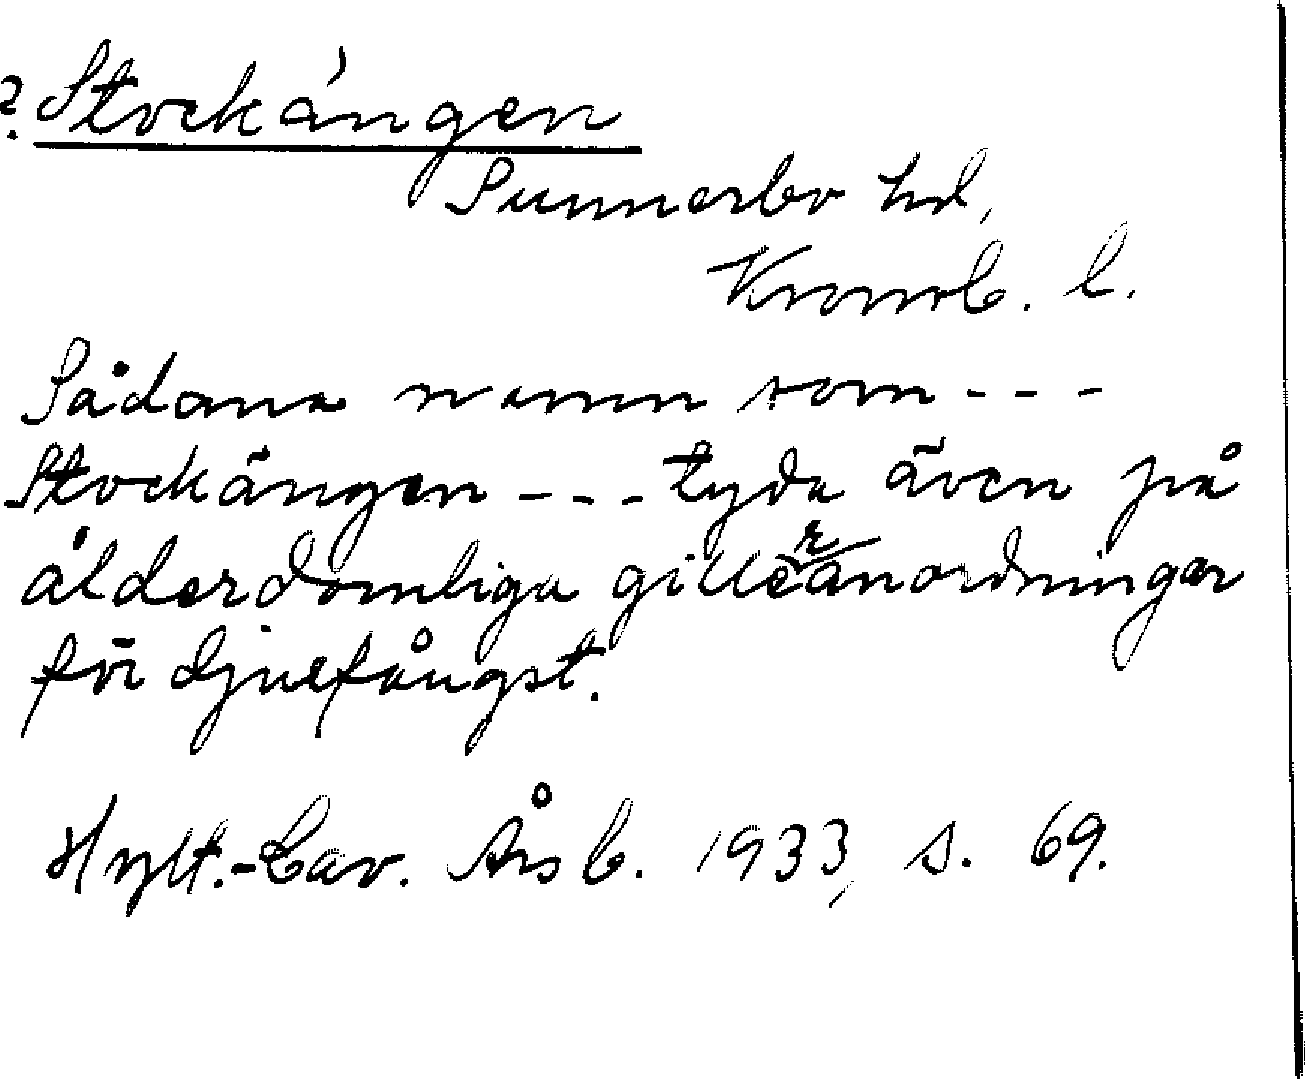 ? Stockängen
Sunnerbo hd,
Kronob. l.
Sådana namn som - - -
Stockängen - - - tyda även på
ålderdomliga gilleranordningar
för djurfångst.
Hylt.-Cav. Årsb. 1933, s. 69.